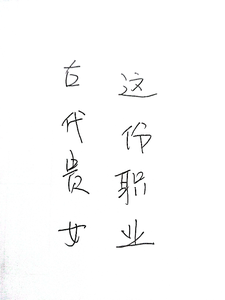 古代贵女
这份职业